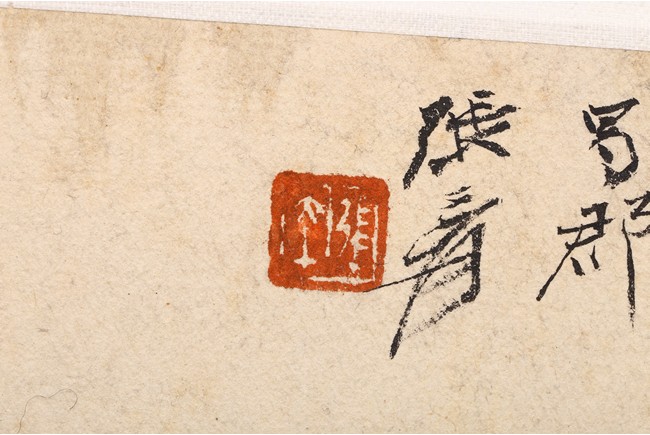 蜀郡
張爰